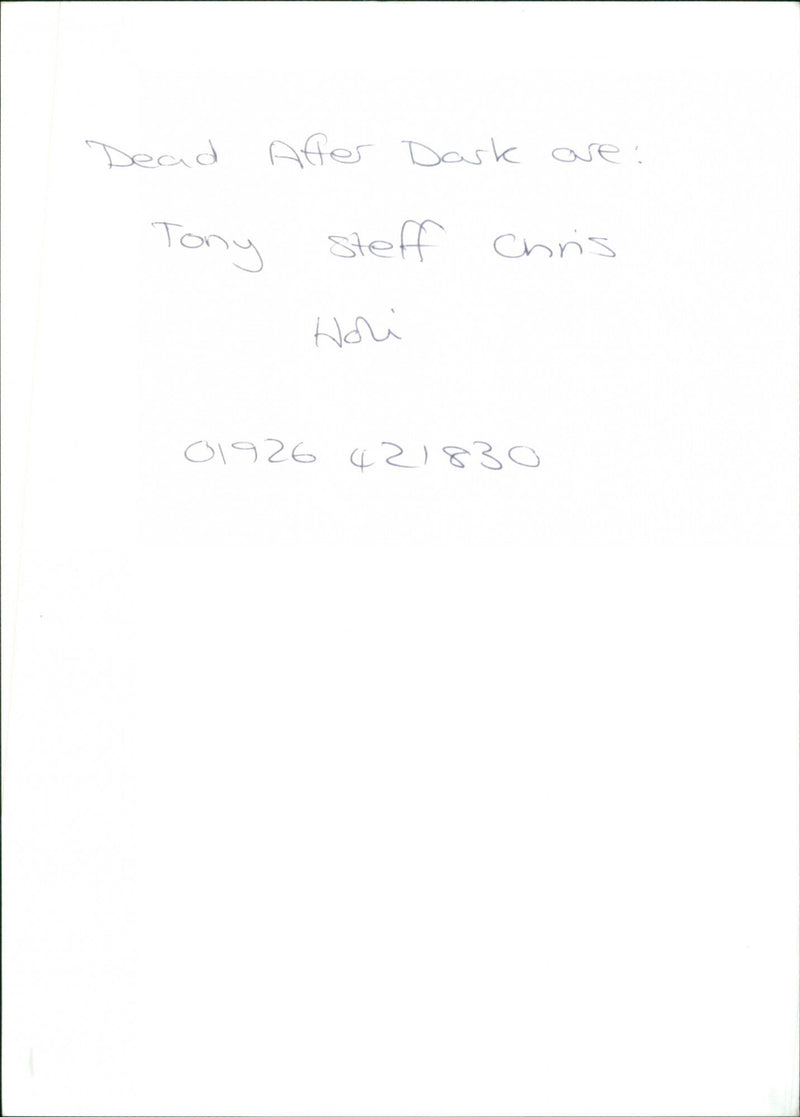 Dead After Dark are:
Tony Steff Chris
01926 421830